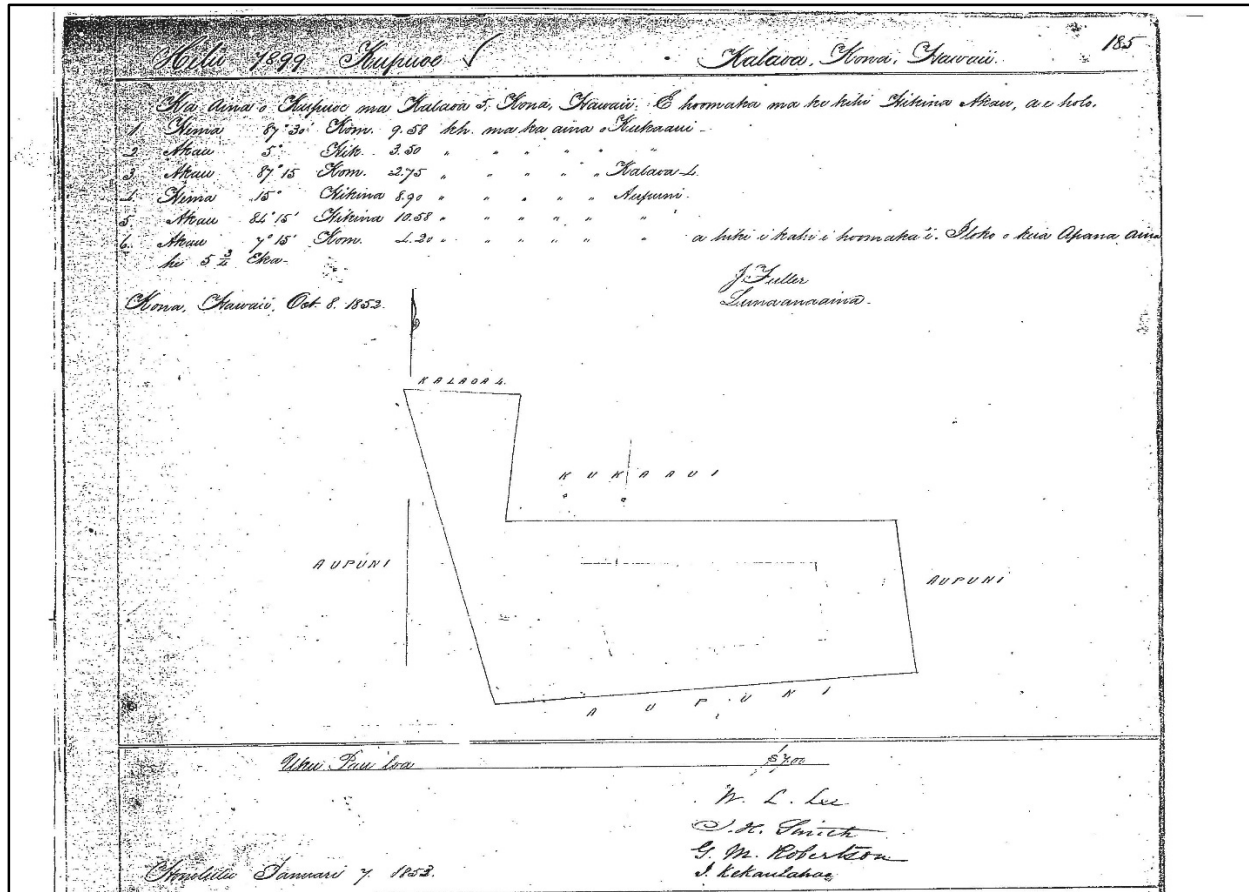 185
Helu 7899 Kupuoe Kalaoa, Kona, Hawaii.
Ka Aina o Kupuoe ma Kalaoa 5, Kona, Hawaii. E hoomaka ma ke kihi Hikina Akau, a e holo.
1 Hema 87° 30' Kom. 9.58 kh. ma ka aina o Kukaaui
2 Akau 5° Hik. 3.50 " " " " " "
3 Akau 87° 15 Kom. 2.75 " " " " " Kalaoa 4.
4 Hema 15° Hikina 8.90 " " " " " Aupuni.
5 Akau 84° 15' Hikina 10.58 " " " " " "
6. Akau 7° 15' Kom. 4.20 " " " " " " a hiki i kahi i hoomaka'i. Iloko o keia Apana aina
he 5 Eka.
J. Fuller
Lunaanaaina.
Kona, Hawaii, Oct. 8. 1852.
KALAOA 4.
KUKAAUI
AUPUNI
AUPUNI
AUPUNI
Uku Pau loa $7.00
W. L. Lee
J. H. Smith
G. M. Robertson
J. Kekaulahao
Honolulu Ianuari 7. 1853.